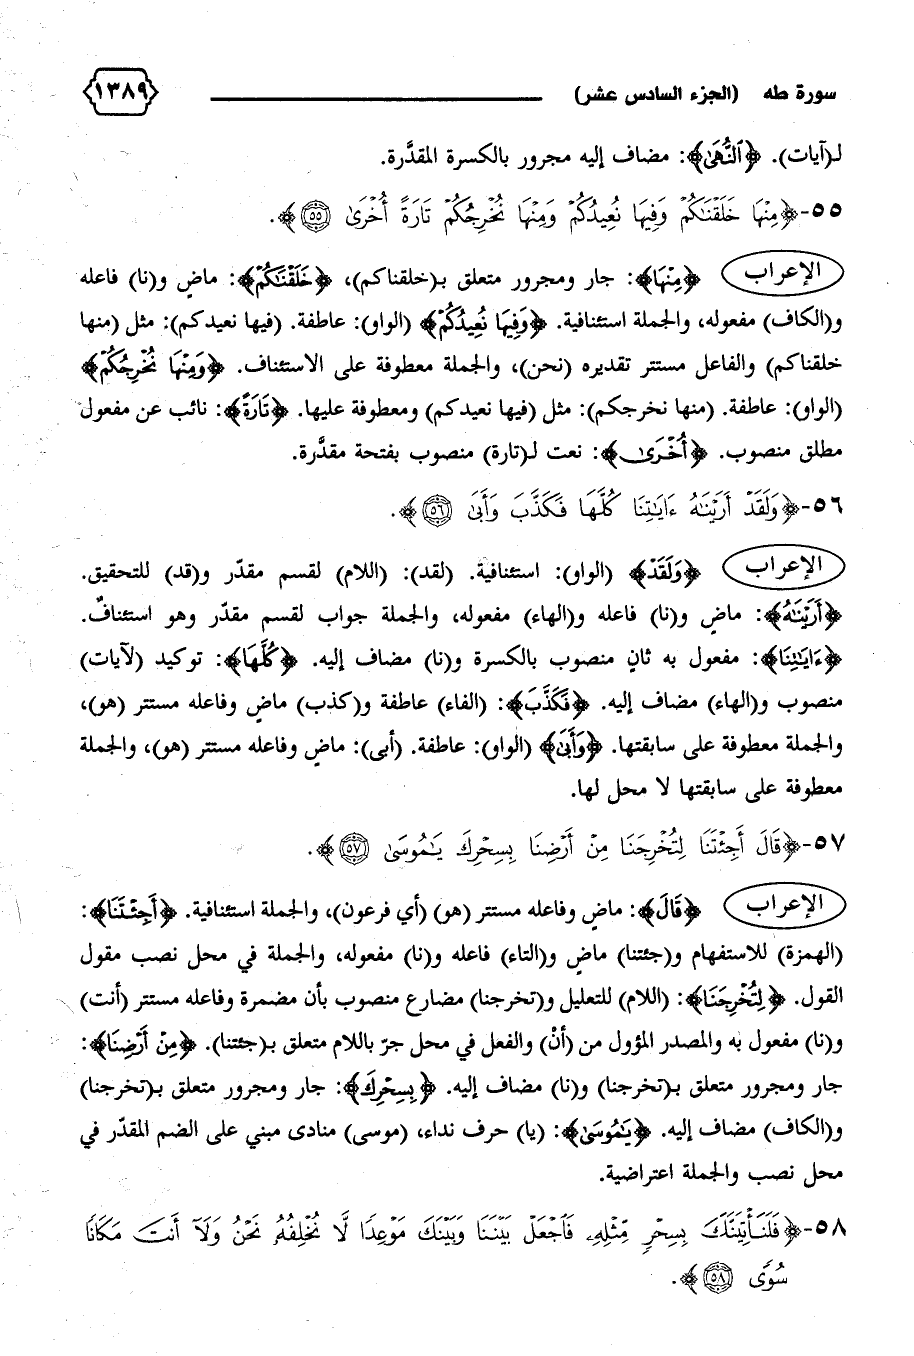 سورة طه (الجزء السادس عشر) ١٣٨٩
لـ(آيات). ﴿ٱلنُّهَىٰ﴾: مضاف إليه مجرور بالكسرة المقدَّرة.
٥٥-﴿مِنْهَا خَلَقْنَٰكُمْ وَفِيهَا نُعِيدُكُمْ وَمِنْهَا نُخْرِجُكُمْ تَارَةً أُخْرَىٰ ٥٥﴾.
الإعراب ﴿مِنْهَا﴾: جار ومجرور متعلق بـ(خلقناكم)، ﴿خَلَقْنَٰكُمْ﴾: ماضٍ و(نا) فاعله
و(الكاف) مفعوله، والجملة استئنافية. ﴿وَفِيهَا نُعِيدُكُمْ﴾ (الواو): عاطفة. (فيها نعيدكم): مثل (منها
خلقناكم) والفاعل مستتر تقديره (نحن)، والجملة معطوفة على الاستئناف. ﴿وَمِنْهَا نُخْرِجُكُمْ﴾
(الواو): عاطفة. (منها نخرجكم): مثل (فيها نعيدكم) ومعطوفة عليها. ﴿تَارَةً﴾: نائب عن مفعول
مطلق منصوب. ﴿أُخْرَىٰ﴾: نعت لـ(تارة) منصوب بفتحة مقدَّرة.
٥٦-﴿وَلَقَدْ أَرَيْنَٰهُ ءَايَٰتِنَا كُلَّهَا فَكَذَّبَ وَأَبَىٰ ٥٦﴾.
الإعراب ﴿وَلَقَدْ﴾ (الواو): استئنافية. (لقد): (اللام) لقسم مقدّر و(قد) للتحقيق.
﴿أَرَيْنَٰهُ﴾: ماضٍ و(نا) فاعله و(الهاء) مفعوله، والجملة جواب لقسم مقدّر وهو استئنافٌ.
﴿ءَايَٰتِنَا﴾: مفعول به ثانٍ منصوب بالكسرة و(نا) مضاف إليه. ﴿كُلَّهَا﴾: توكيد (لآيات)
منصوب و(الهاء) مضاف إليه. ﴿فَكَذَّبَ﴾: (الفاء) عاطفة و(كذب) ماضٍ وفاعله مستتر (هو)،
والجملة معطوفة على سابقتها. ﴿وَأَبَىٰ﴾ (الواو): عاطفة. (أبى): ماضٍ وفاعله مستتر (هو)، والجملة
معطوفة على سابقتها لا محل لها.
٥٧-﴿قَالَ أَجِئْتَنَا لِتُخْرِجَنَا مِنْ أَرْضِنَا بِسِحْرِكَ يَٰمُوسَىٰ ٥٧﴾.
الإعراب ﴿قَالَ﴾: ماضٍ وفاعله مستتر (هو) (أي فرعون)، والجملة استئنافية. ﴿أَجِئْتَنَا﴾:
(الهمزة) للاستفهام و(جئتنا) ماضٍ و(التاء) فاعله و(نا) مفعوله، والجملة في محل نصب مقول
القول. ﴿لِتُخْرِجَنَا﴾: (اللام) للتعليل و(تخرجنا) مضارع منصوب بأن مضمرة وفاعله مستتر (أنت)
و(نا) مفعول به والمصدر المؤول من (أنْ) والفعل في محل جرّ باللام متعلق بـ(جئتنا). ﴿مِنْ أَرْضِنَا﴾:
جار ومجرور متعلق بـ(تخرجنا) و(نا) مضاف إليه. ﴿بِسِحْرِكَ﴾: جار ومجرور متعلق بـ(تخرجنا)
و(الكاف) مضاف إليه. ﴿يَٰمُوسَىٰ﴾: (يا) حرف نداء، (موسى) منادى مبني على الضم المقدّر في
محل نصب والجملة اعتراضية.
٥٨-﴿فَلَنَأْتِيَنَّكَ بِسِحْرٍ مِّثْلِهِۦ فَٱجْعَلْ بَيْنَنَا وَبَيْنَكَ مَوْعِدًا لَّا نُخْلِفُهُۥ نَحْنُ وَلَآ أَنتَ مَكَانًا
سُوًى ٥٨﴾.